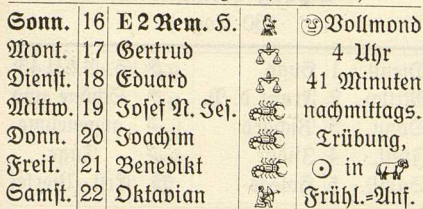 Sonn. 16 E 2 Rem. H. Vollmond
Mont. 17 Gertrud 4 Uhr
Dienst. 18 Eduard 41 Minuten
Mittw. 19 Josef N. Jes. nachmittags.
Donn. 20 Joachim Trübung,
Freit. 21 Benedikt ☉ in
Samst. 22 Oktavian Frühl.=Anf.